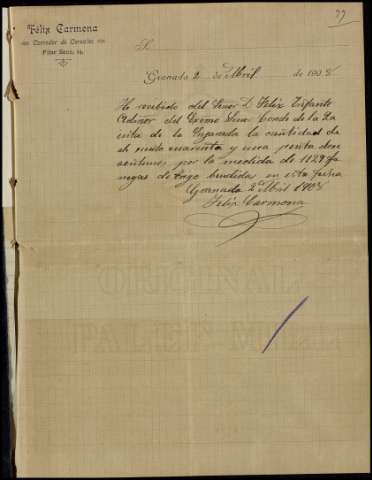 77
Félix Carmona
Corredor de Cereales
Pilar Seco,
S.
Granada 2 de Abril de 190
He recibido del Señor D. Felix Infante
Admor del Excmo Señor Conde de la
de la la cantidad de
cuarenta y una peseta dos
centimos por la medida de 1129 fa
negas de trigo bendida en esta fecha
Granada 2 Abril 190
Felix Carmona
ORIGINAL
MILL